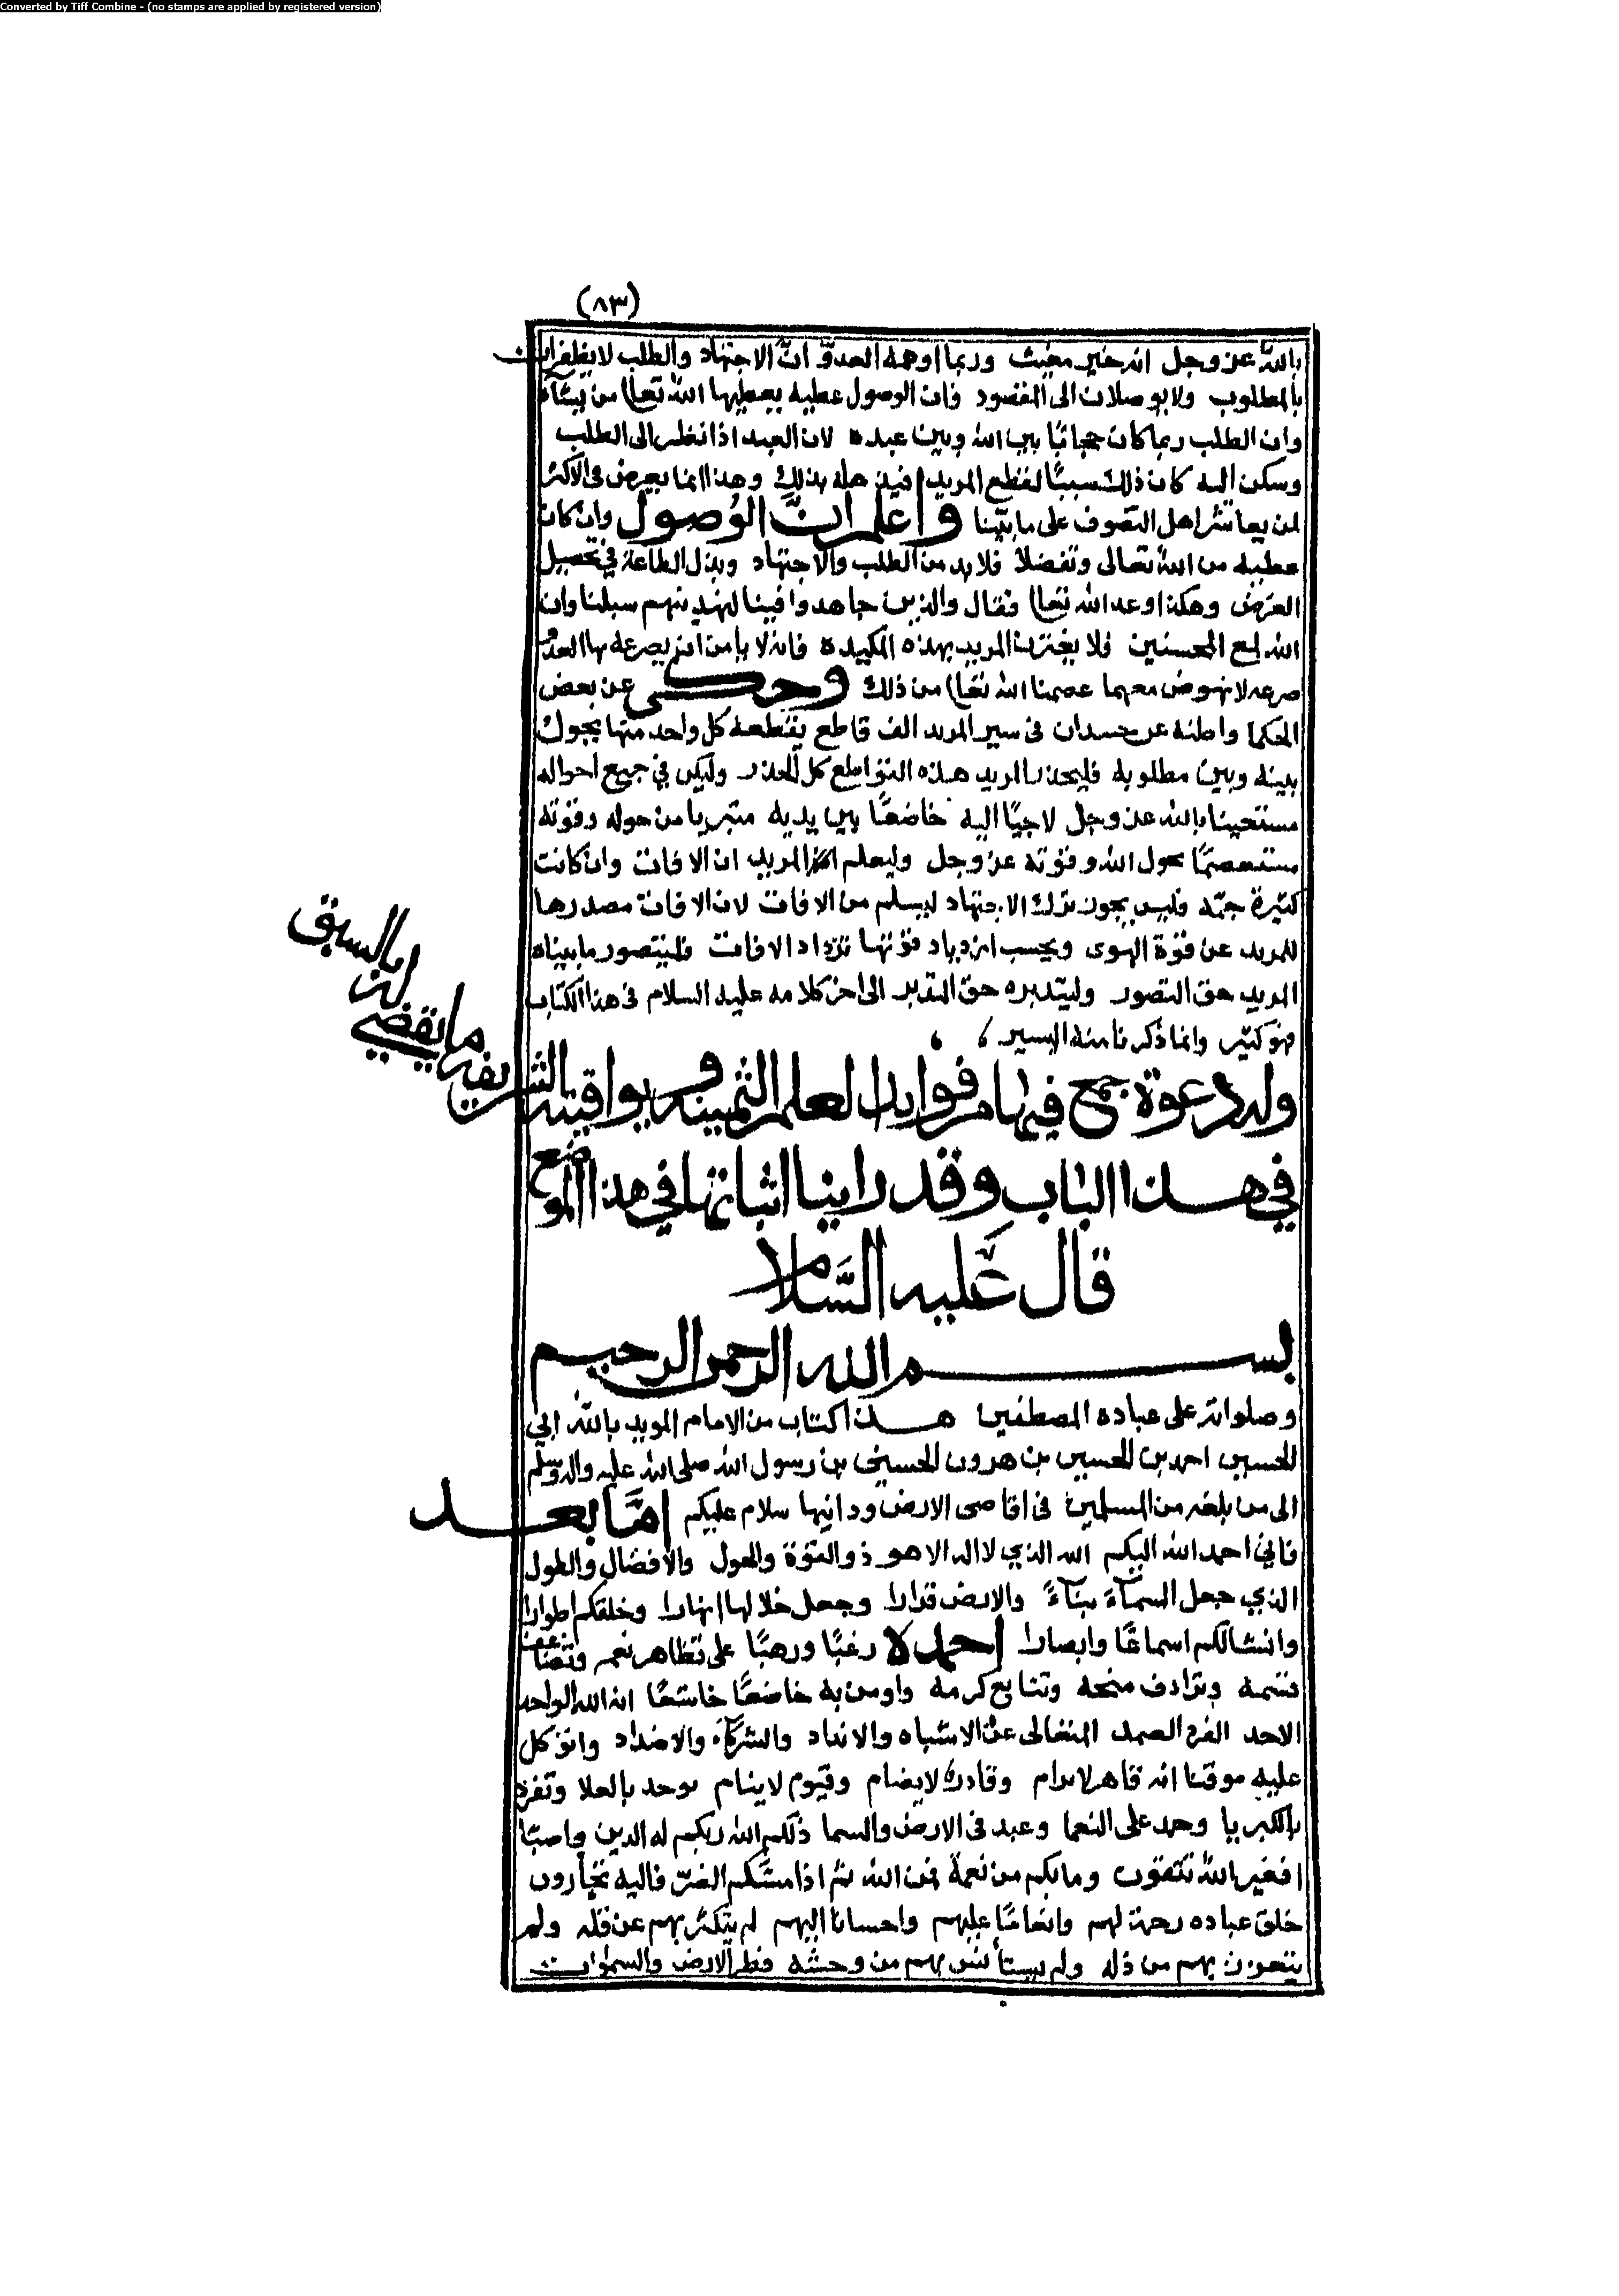 Converted by Tiff Combine - (no stamps are applied by registered version)
(٨٣)
بالله عز وجل انه خير مغيث وربما اوهمه العدوّ انّ الاجتهاد والطلب لا يظفران
بالمطلوب ولا يوصلان الى المقصود فان الوصول عطيه يعطيها الله تعالى من يشآء
وان الطلب ربما كان حجابًا بين الله وبين عبده لان العبد اذا نظر الى الطلب
وسكن اليه كان ذلك سببًا لقطع المريد بذلك وهذا انما يعرض فى الاكثر
لمن يعاشر اهل التصوف على ما بيّنا واعلم انّ الوُصول وان كان
عطيه من الله تعالى وتفضلا فلا بد من الطلب والاجتهاد وبذل الطاعة في تحصيل
الغرض وهكذا وعد الله تعالى فقال والذين جاهدوا فينا لنهدينهم سبلنا وان
الله لمع المحسنين فلا يغترن المريد بهذه المكيدة فانه لا يامن ان يصرعه بها العدوّ
صرعه لا نهوض معها عصمنا الله تعالى من ذلك وحكى عن بعض
الحكما واظنه عن حسدان فى سير المريد الف قاطع يقطعه كل واحد منها يحول
بينه وبين مطلوبه فليحذر المريد هذه القواطع كل الحذر وليكن في جميع احواله
مستعينا بالله عز وجل لاجيًا اليه خاضعًا بين يديه متبريا من حوله وقوته
مستعصمًا بحول الله وقوته عز وجل وليعلم المريد ان الافات وان كانت
كثيرة جمّه فليس يجوز ترك الاجتهاد ليسلم من الافات لان الافات مصدرها
للمريد عن قوة الهوى وبحسب ازدياد قوتها تزداد الافات فليتصور ما بيناه
المريد حق التصور وليتدبره حق التدبر الى اخر كلامه عليه السلام فى هذا الكتاب
فهو كثير وانما ذكرنا منه اليسير
وله دعوة جمع فيها من فوايد العلم الثمينه ويواقيته الشريفه ما يقضي له بالسبق
في هذا الباب وقد راينا اثباتها في هذا الموضع
قال عَليه السَّلام
بسم الله الرحمن الرحيم
وصلواته على عباده المصطفين هذا كتاب من الامام المويد بالله ابي
الحسين احمد بن الحسين بن هرون الحسيني بن رسول الله صلى الله عليه واله وسلم
الى من بلغه من المسلمين فى اقاصى الارض ودانيها سلام عليكم امَّا بعد
فاني احمد الله اليكم الله الذي لا اله الا هو ذو القوة والحول والافضال والطول
الذي جعل السمآء بنآءً والارض قرارا وجعل خلالها انهارا وخلقكم اطوارا
وانشا لكم اسماعًا وابصارا احمده رغبًا ورهبًا على تظاهر نعمه وتضاعف
قسمه وترادف منحه وتتابع كرمه واومن به خاضعًا خاشعًا انه الله الواحد
الاحد الفرد الصمد المتعالى عن الاشباه والانداد والشركآء والاضداد واتوكل
عليه موقنا انه قاهر لا يرام وقادر لا يضام وقيوم لا ينام توحد بالعلا وتفرد
بالكبريا وحمد على النعما وعبد فى الارض والسما ذلكم الله ربكم له الدين واصبًا
افغير الله تتقون وما بكم من نعمة فمن الله ثم اذا مسّكم الضرّ فاليه تجأرون
خلق عباده رحمة لهم وانعامًا عليهم واحسانا اليهم لم يتكثر بهم عن قله ولم
يتعزز بهم من ذله ولم يستأنس بهم من وحشه فطر الارض والسموات